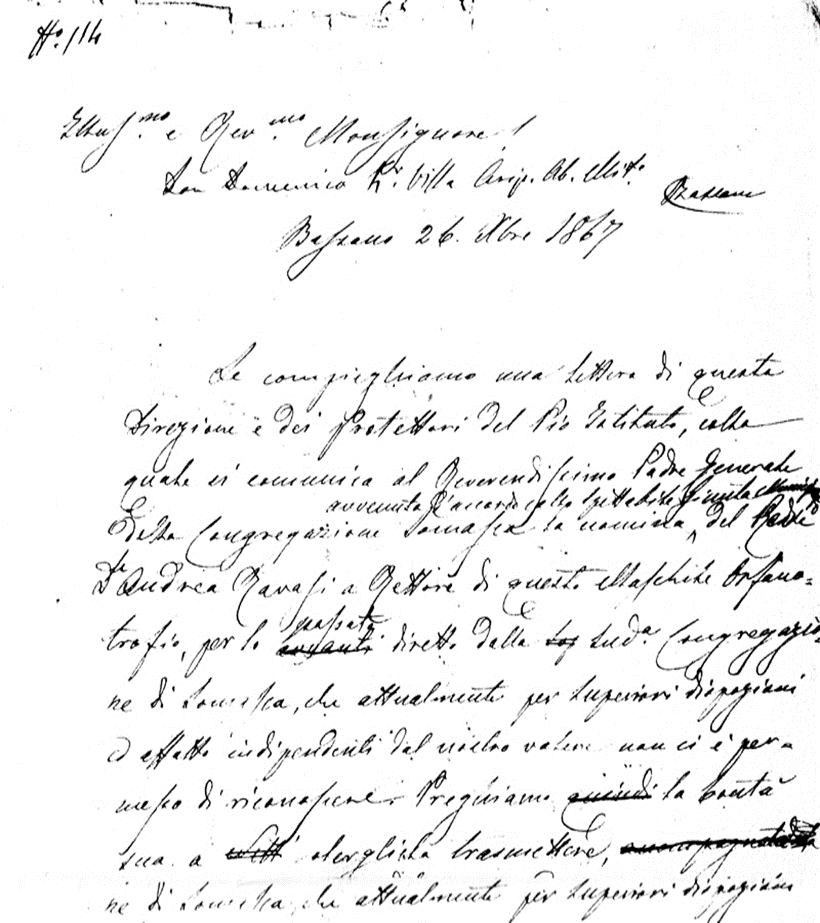 N.° 114
Illus.mo e Rev.mo Monsignore
Don Domenico Villa Arcip. Ab. Mit.° Bassano
Bassano 26. Xbre 1867
Le compieghiamo una lettera di questa
Direzione e dei Protettori del Pio Istituto, colla
quale si comunica al Reverendissimo Padre Generale
avvenuta d'accordo collo Spettabile Giunta
della Congregazione Somasca la nomina, del
Andrea Ravasi a Rettore di questo Maschile Orfano=
passato
trofio, per lo avanti diretto dalla Sud.a Congregazio
ne di Somasca, che attualmente per Superiori disposizioni
ed affatto indipendenti dal nostro volere non ci è per=
messo di riconoscere. Preghiamo quindi la bontà
sua a volergliela trasmettere, accompagnata
ne di Somasca, che attualmente per Superiori disposizioni